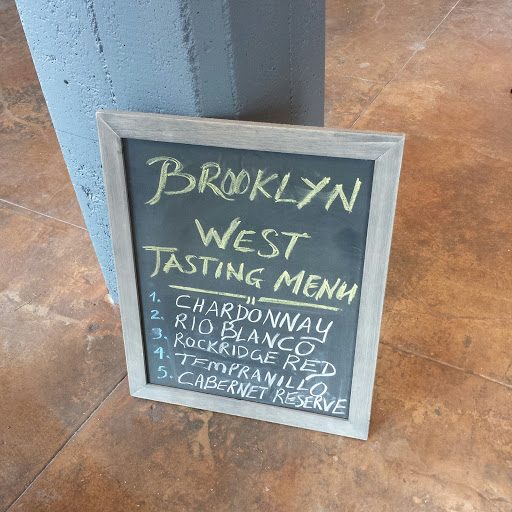 BROOKLYN
WEST
TASTING MENU
1. CHARDONNAY
2. RIO BLANCO
3. ROCKRIDGE RED
4. TEMPRANILLO
5. CABERNET RESERVE